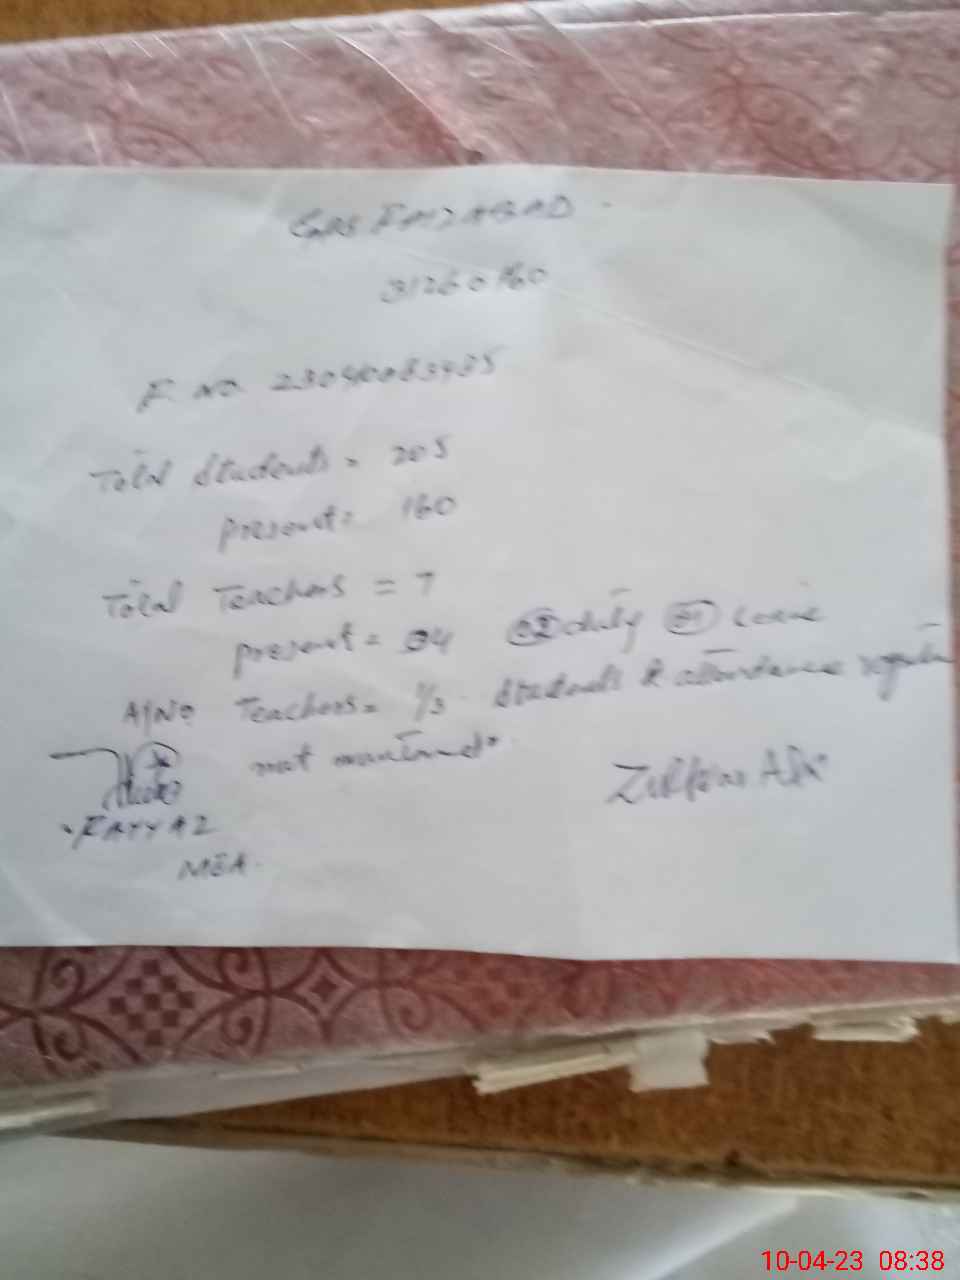 GPS FAIZABAD
31260160
F. No 23041003485
Total Students = 205
present = 160
Total Teachers = 7
present = 04 02 duty 01 Leave
A/No Teachers = 1/3. Students & attendance register
not maintained.
FAYYAZ
MEA.
10-04-23 08:38